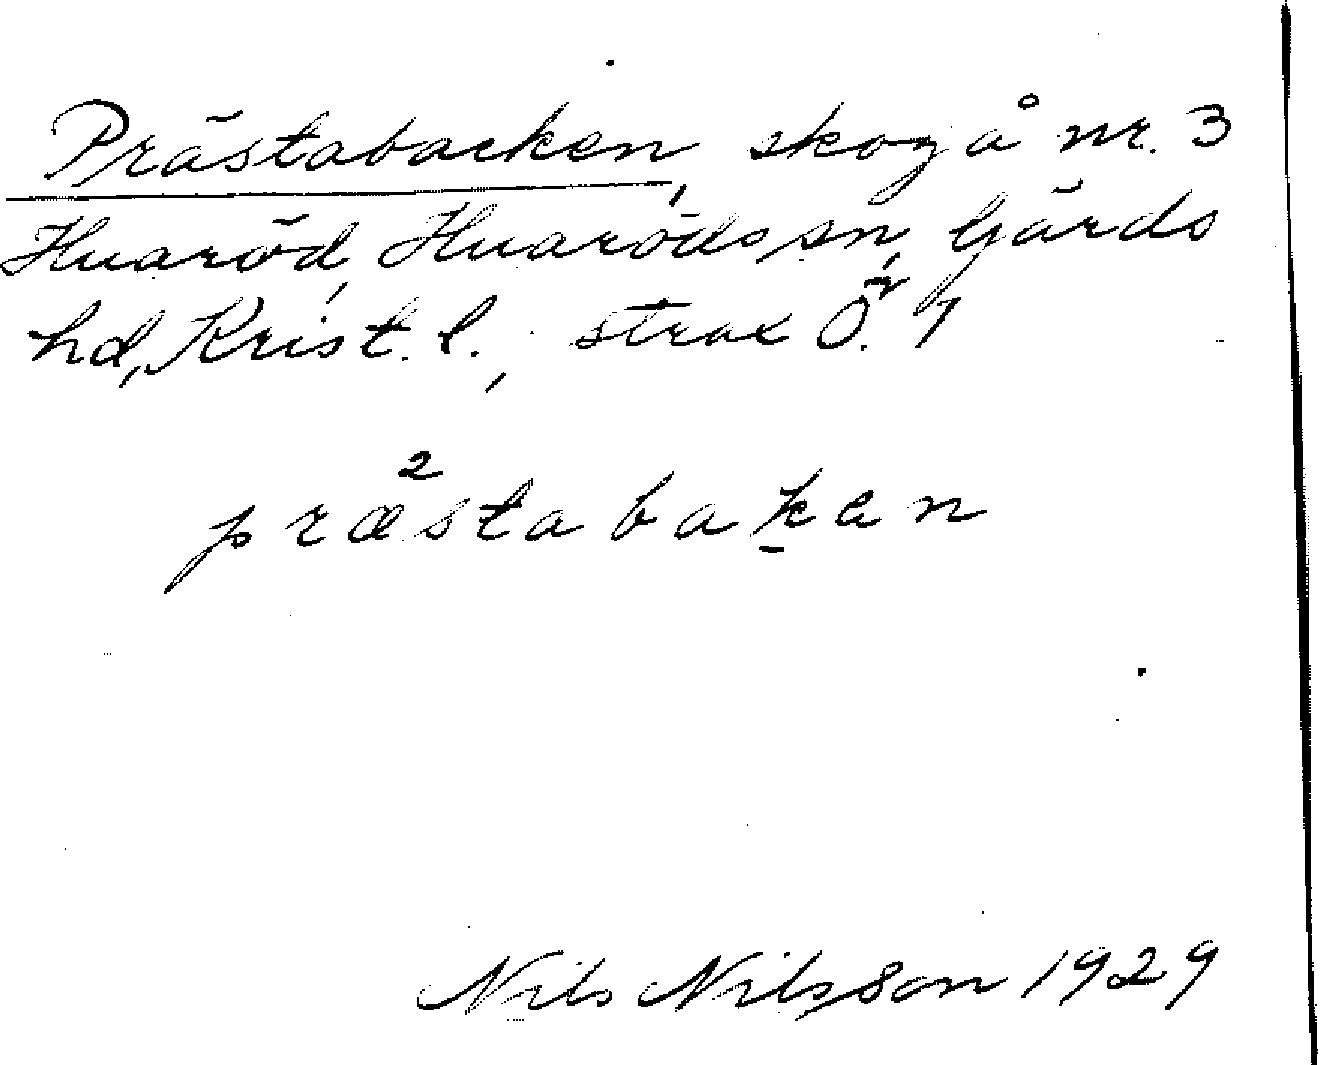 Prästabacken, skog å nr. 3
Huaröd, Huaröds sn, Gärds
hd, Krist. l., strax Ö. 1
præ²stabaḵen
Nils Nilsson 1929